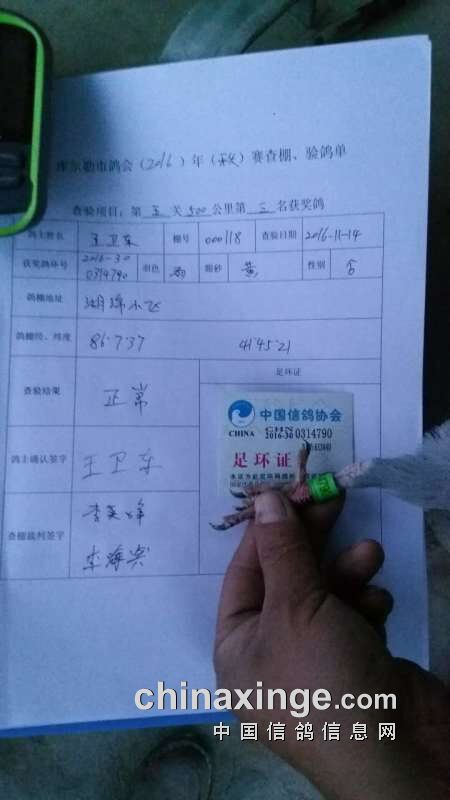 库尔勒市鸽会(2016)年(秋)赛查棚、验鸽单
查验项目:第 五 关 500 公里第 三 名获奖鸽
鸽主姓名 王卫东 棚号 000118 查验日期 2016-11-14
获奖鸽环号 2016-30 0314790 羽色 雨 眼砂 黄 性别
鸽棚地址
鸽棚经、纬度 86.737 41.45.21
查验结果 正常 足环证
鸽主确认签字 王卫东
查棚裁判签字
中国信鸽协会
CHINA CHN 2016-30 0314790
足环证
chinaxinge.com
中国信鸽信息网